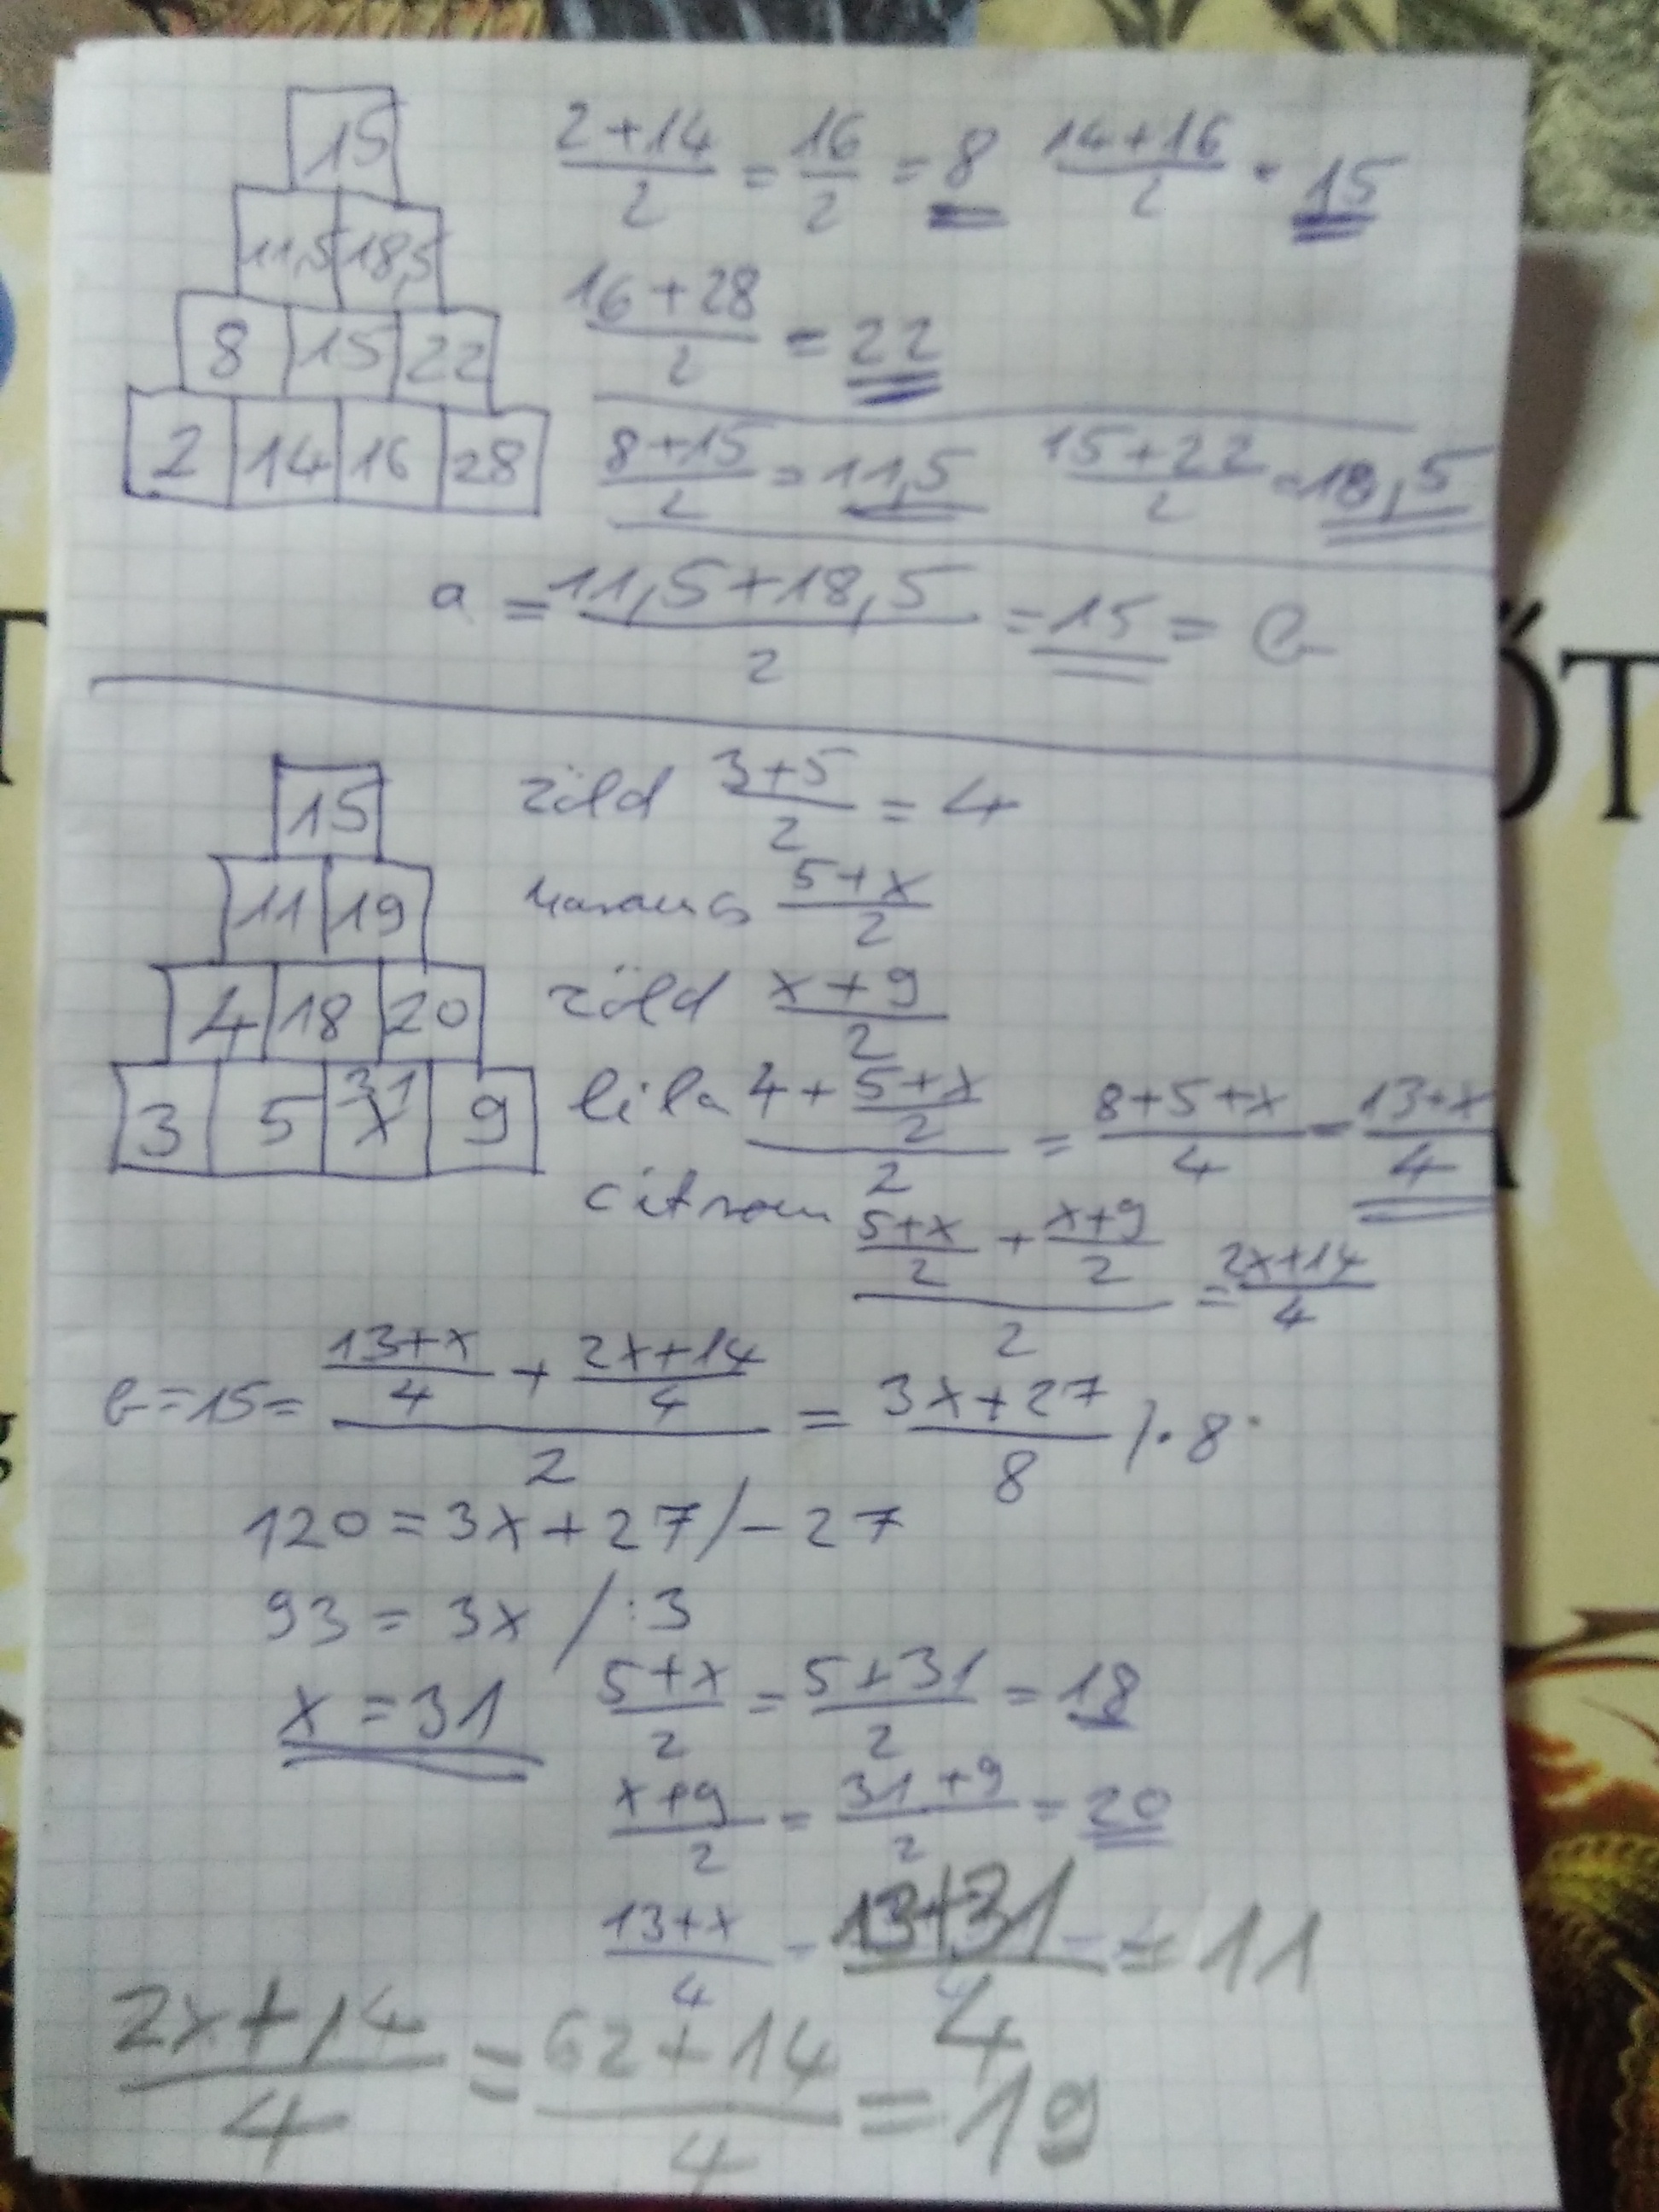 15
11,5 18,5
8 15 22
2 14 16 28
(2+14)/2 = 16/2 = 8 (14+16)/2 = 15
(16+28)/2 = 22
(8+15)/2 = 11,5 (15+22)/2 = 18,5
a = (11,5+18,5)/2 = 15 = b
15
11 19
4 18 20
3 5 31 x 9
zöld (3+5)/2 = 4
narancs (5+x)/2
zöld (x+9)/2
lila (4+(5+x)/2)/2 = (8+5+x)/4 = (13+x)/4
citrom ((5+x)/2 + (x+9)/2)/2 = (2x+14)/4
b = 15 = ((13+x)/4 + (2x+14)/4)/2 = (3x+27)/8 /·8
120 = 3x+27 /-27
93 = 3x /:3
x = 31
(5+x)/2 = (5+31)/2 = 18
(x+9)/2 = (31+9)/2 = 20
(13+x)/4 = (13+31)/4 = 11
(2x+14)/4 = (62+14)/4 = 19
ŐT